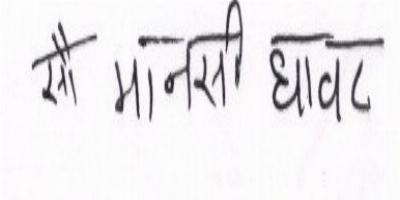 सौ मानसी घावट